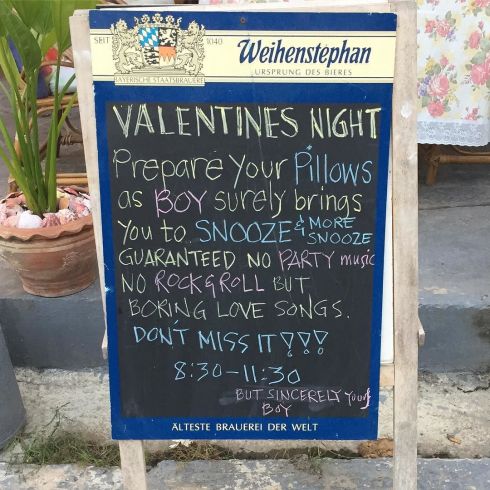 SEIT 1040
BAYERISCHE STAATSBRAUEREI
Weihenstephan
URSPRUNG DES BIERES
VALENTINES NIGHT
Prepare your Pillows
as BOY surely brings
you to SNOOZE & MORE SNOOZE
GUARANTEED NO PARTY music
NO ROCK&ROLL BUT
BORING LOVE SONGS.
DON'T MISS IT!!!
8:30-11:30
BUT SINCERELY Yours
BOY
ÄLTESTE BRAUEREI DER WELT